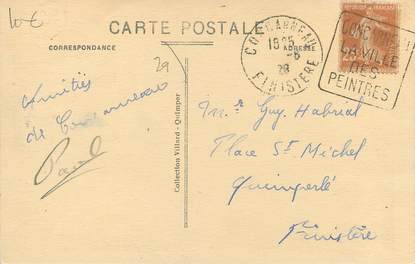 CARTE POSTALE
CORRESPONDANCE
ADRESSE
29
CONCARNEAU
15 25
-8
28
FINISTERE
CONCARNEAU
LA VILLE
DES
PEINTRES
Amitiés
de Concarneau
Paul
Collection Villard - Quimper
Mr Guy Habrial
Place St Michel
Quimperlé
Finistère